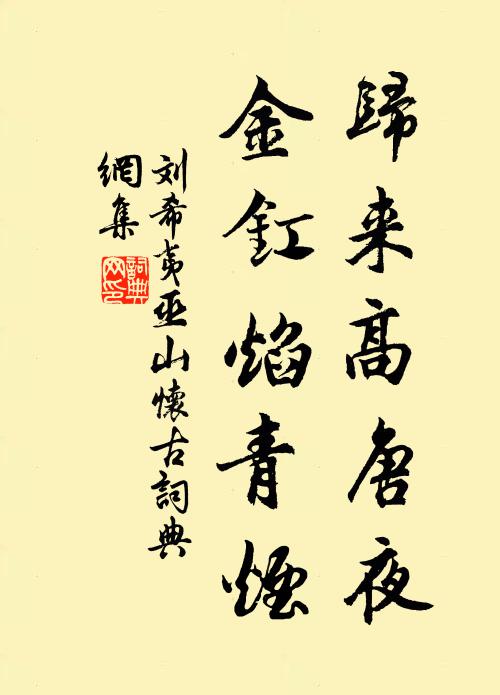 歸来高唐夜
金釭焰青煙
刘希夷巫山懷古詞典
網集
詞典
网印